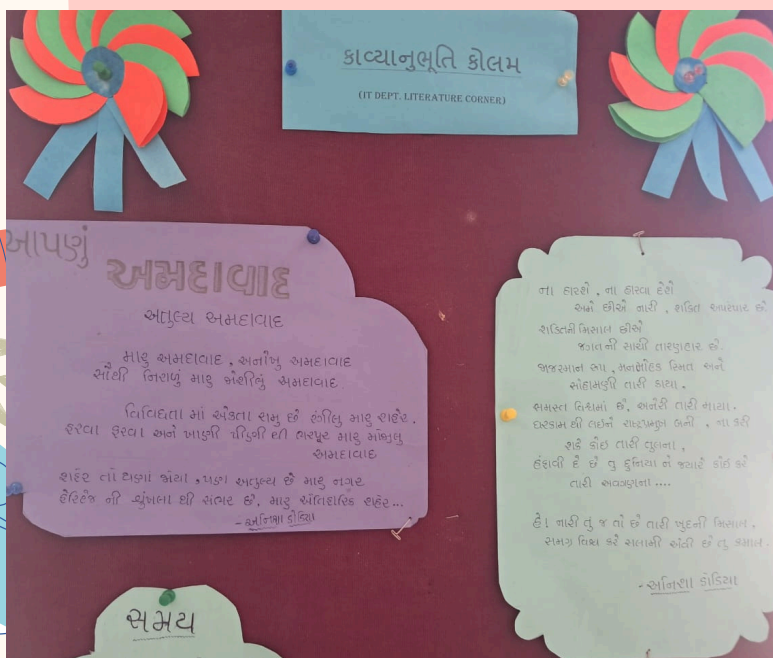 કાવ્યાનુભૂતિ કોલમ
(IT DEPT. LITERATURE CORNER)
આપણું
અમદાવાદ
અતુલ્ય અમદાવાદ
મારુ અમદાવાદ, અનોખુ અમદાવાદ
સૌથી નિરાળું મારુ જોશીલું અમદાવાદ.
વિવિધતા માં એકતા સમુ છે રંગીલુ મારુ શહેર,
ફરવા ફરવા અને ખાણી પીણી થી ભરપૂર મારુ
અમદાવાદ
શહેર તો ઘણાં જોયા, પણ અતુલ્ય છે મારુ નગર
હેરિટેજ ની શૃંખલા થી સભર છે, મારુ ઐતિહાસિક શહેર...
- અનિશા કોડિયા
ના હારશે, ના હારવા દેશે
અમે છીએ નારી, શક્તિ અપરંપાર છે.
શક્તિની મિસાલ છીએ
જગત ની સાચી તારણહાર છે.
આ, મનમોહક સ્મિત અને
સોહામણી તારી કાયા,
સમસ્ત વિશ્વમાં છે, અનેરી તારી માયા.
ઘરકામ થી લઈને રાષ્ટ્રપ્રમુખ બની, ના કરી
શકે કોઈ તારી તુલના,
હંફાવી દે છે તુ દુનિયા ને જ્યારે કોઈ કરે
તારી અવગણના....
હે! નારી તું જ તો છે તારી ખુદની મિસાલ,
સમગ્ર વિશ્વ કરે સલામી એવી છે તુ કમાલ.
- અનિશા કોડિયા
સમય